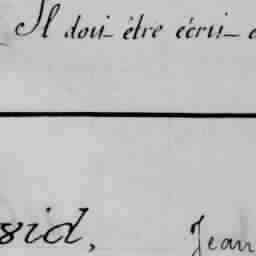 Il doit être écrit
sid, Jean